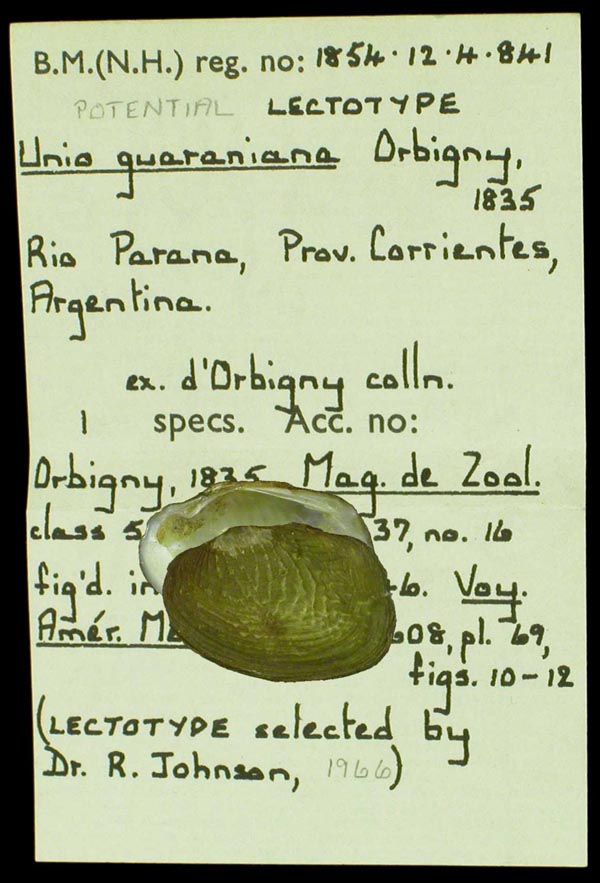 B.M.(N.H.) reg. no: 1854·12·4·841
POTENTIAL LECTOTYPE
Unio guaraniana Orbigny,
1835
Rio Parana, Prov. Corrientes,
Argentina.
ex. d'Orbigny colln.
1 specs. Acc. no:
Orbigny, 1835 Mag. de Zool.
class 5 37, no. 16
fig'd. in 6. Voy.
Amér. 608, pl. 69,
figs. 10-12
(LECTOTYPE selected by
Dr. R. Johnson, 1966)